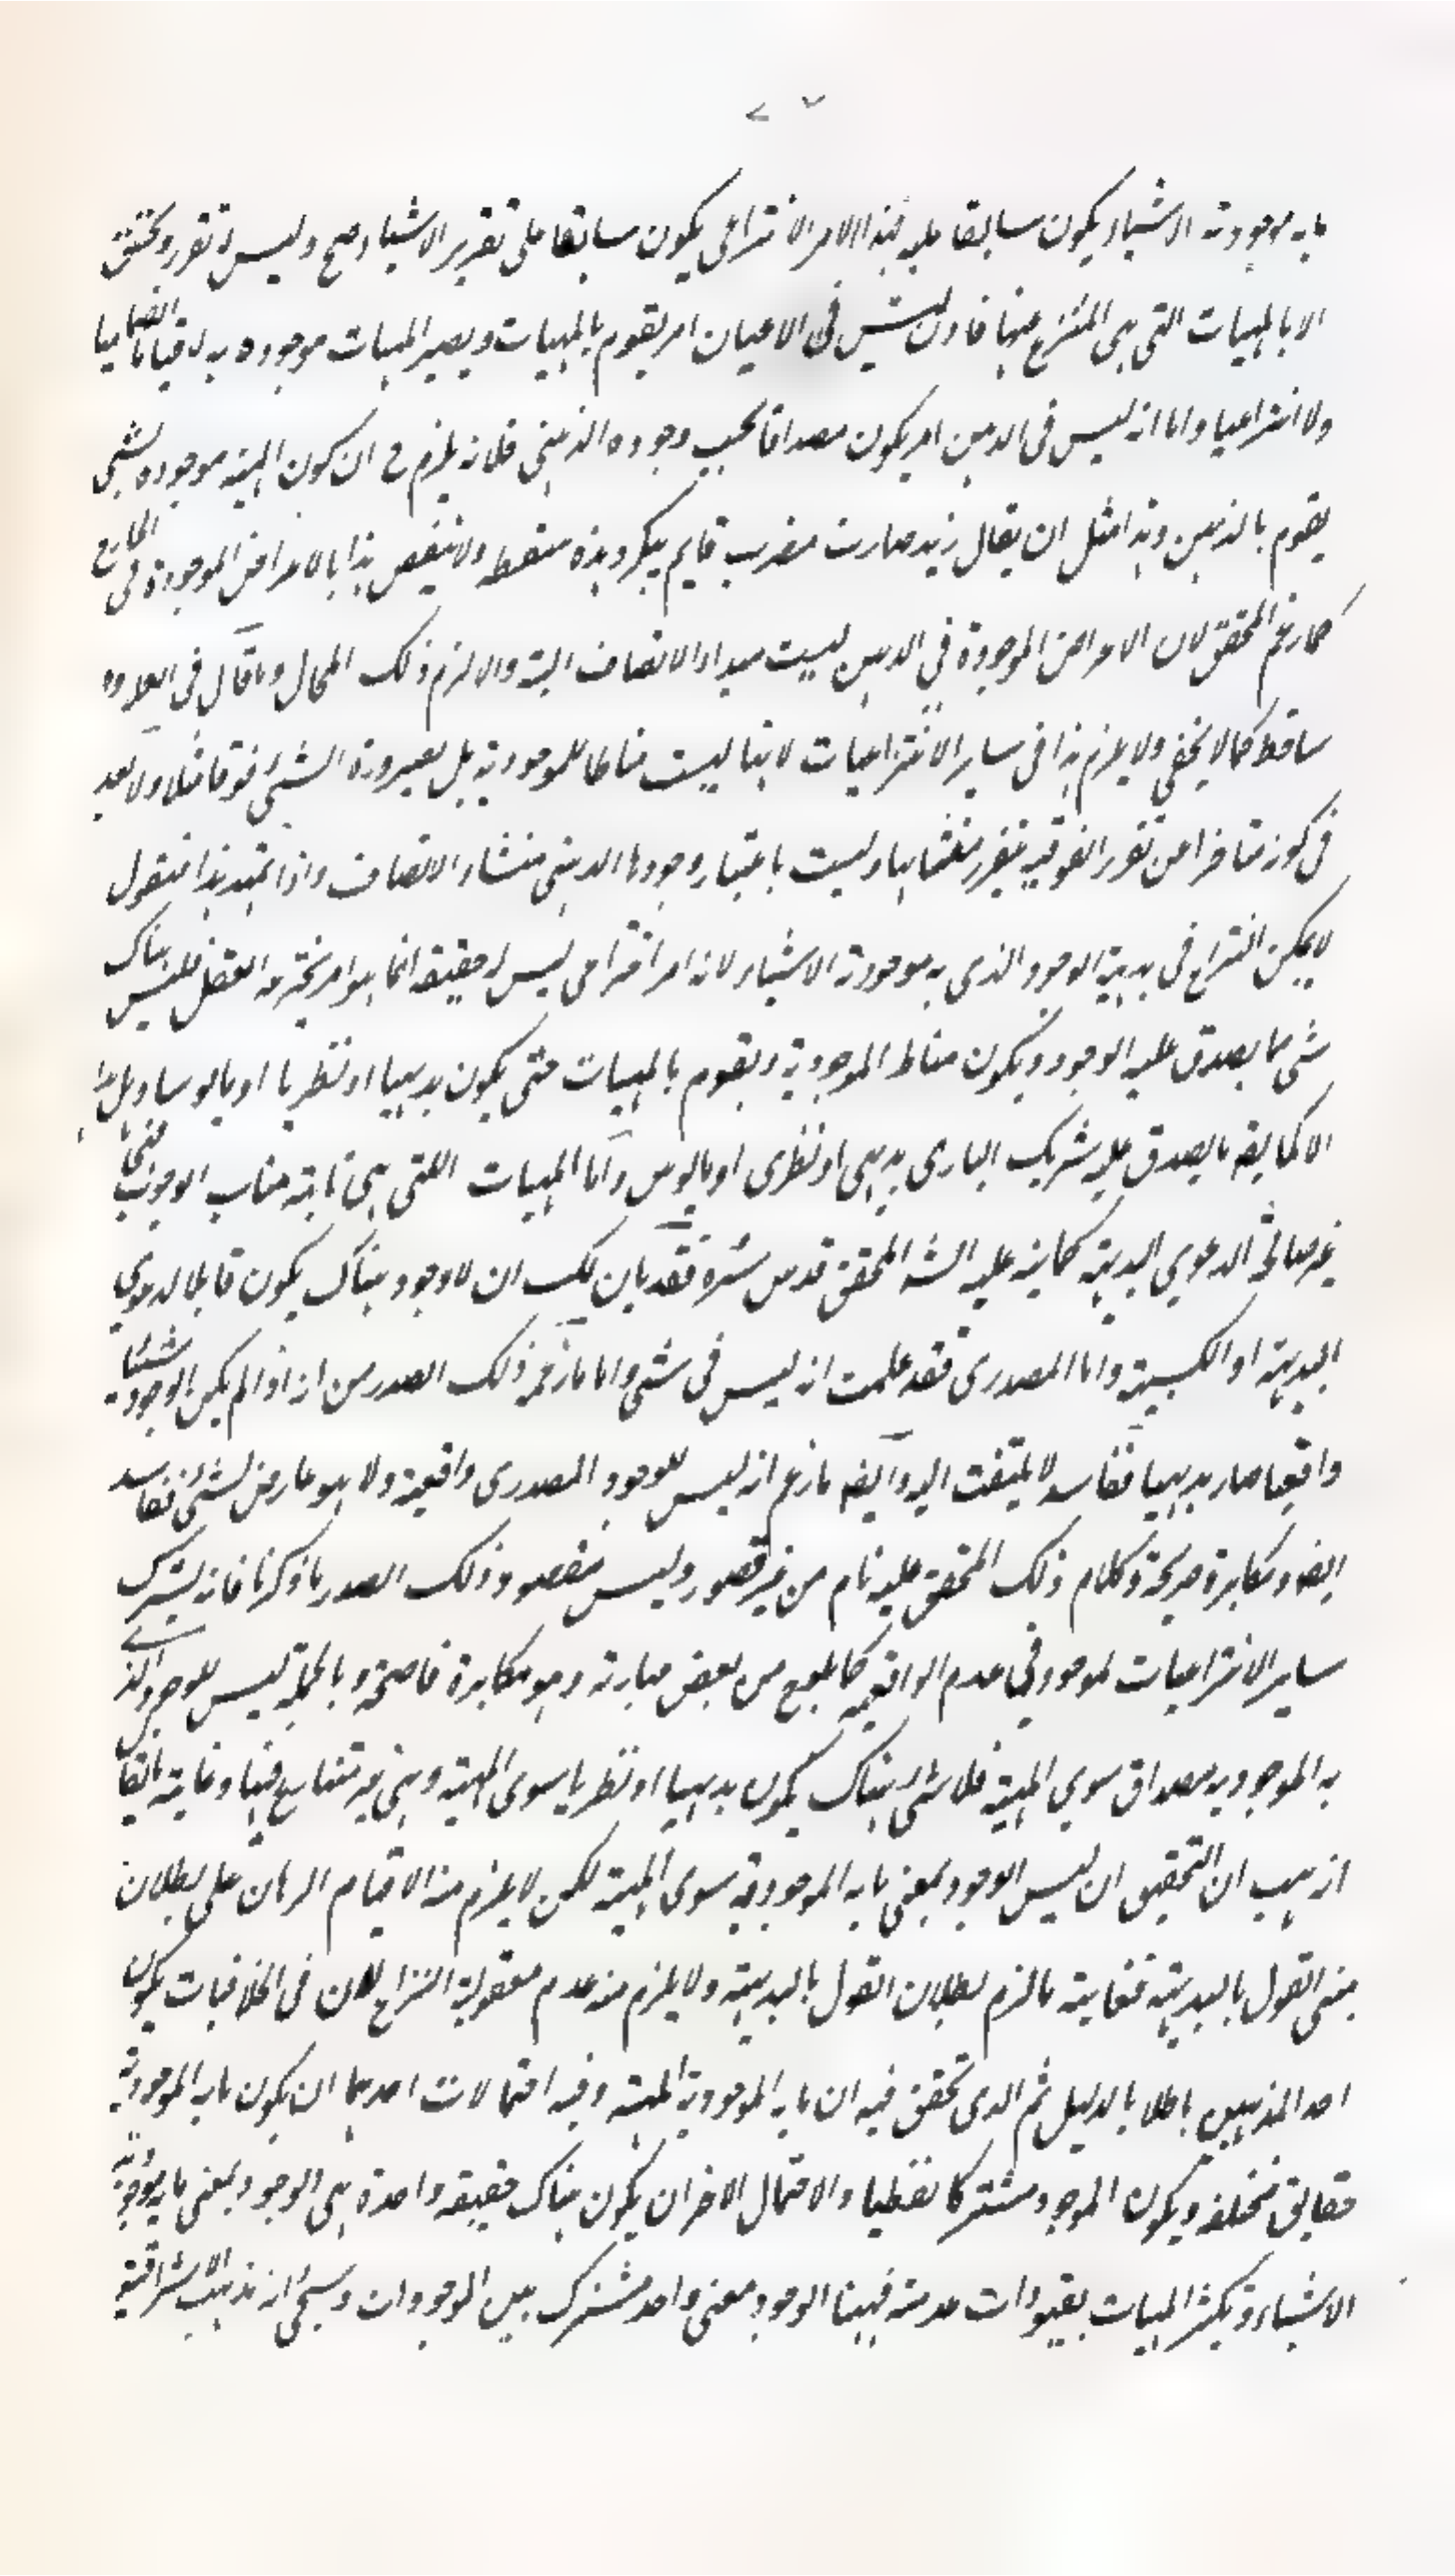 ما به موجودية الاشياء يكون سابقا عليه فهذا الامر الانتزاعي يكون سابقا على تقرير الاشياء وليس له تقرر وتحقق
الا بالمهيات التي هي المنتزع عنها فاذن ليس في الاعيان امر يقوم بالمهيات ويصير المهيات موجوده به لا قياما انضماميا
ولا انتزاعيا واما انه ليس في الذهن امر يكون مصداقا بحسب وجوده الذهني فلانه يلزم ح ان يكون المهية موجودة بشئ
يقوم بالذهن وهذا مثل ان يقال زيد صارب بضرب قايم ببكر وهذه سفسطه ولا ينتقض هذا بالاعراض الموجودة في الخارج
كما زعم المحقق لان الاعراض الموجودة في الذهن ليست مبداء الاتصاف البتة والا لزم ذلك المحال وما قال في العلاوه
ساقط كما لا يخفى ولا يلزم هذا في ساير الانتزاعيات لانها ليست مناطا للموجودية بل لصيرورة الشئ فوقا مثلا ولا بعد
في كونه متاخرا عن تقرر الفوقية بتقرر منشائها وليست باعتبار وجودها الذهني منشاء الاتصاف واذا تمهد هذا فنقول
لا يمكن النزاع في بديهية الوجود الذي به موجودية الاشياء لانه امر اختراعي ليس له حقيقة انما هو امر يخترعه العقل فليس هناك
شئ ما يصدق عليه الوجود ويكون مناط الموجودية ويقوم بالمهيات حتى يكون بديهيا او نظريا او مايوسا وهل هذا
الا كما يقه ما يصدق عليه شريك الباري بديهي او نظري او مايوس واما المهيات اللتي هي نايبة مناب الوجود فهي
غير صالح الدعوي البديهة كما نبه عليه الشه المحقق قدس سره فقد بان لك ان لا وجود هناك يكون قابلا لدعوي
البديهة او الكسبية واما المصدري فقد علمت انه ليس في شئ واما ما زعم ذلك الصدر من انه اذا لم يكن الوجود شيئا
واقعيا صار بديهيا ففاسد لا يلتفت اليه وايضه ما زعم انه ليس للوجود المصدري واقعية ولا هو عارض لشئ ففاسد
ايضه ومكابرة صريحة وكلام ذلك المحقق عليه تام من غير قصور وليس مقصود ذلك الصدر ما ذكرنا فانه يشرك
ساير الانتزاعيات لوجود في عدم الواقعية كما يلوح من بعض عبارته وهو مكابرة فاضحة وبالجملة ليس للوجود الذي
به الموجوديه مصداق سوي المهية فلا شئ هناك يكون بديهيا او نظريا سوى المهية وهي غير متنازع فيها وغاية ما يقه
انه هب ان التحقيق ان ليس الوجود بمعني ما به الموجودية سوى المهية لكن لا يلزم منه الا قيام البرهان على بطلان
مبنى القول بالبديهية فغايته ما لزم بطلان القول بالبديهية ولا يلزم منه عدم معقولية النزاع لان في الخلافيات يكون
احد المذهبين باطلا بالدليل ثم الذي تحقق فيه ان ما به الموجودية المهية وفيه احتمالات احدها ان يكون ما به الموجودية
حقايق مختلفة ويكون الموجود مشتركا لفظيا والاحتمال الاخر ان يكون هناك حقيقة واحدة هي الوجود بمعنى ما به موجودية
الاشياء وتكثر المهيات بقيودات عدمية فههنا الوجود معنى واحد مشترك بين الموجودات وسيجئ انه مذهب الاشراقية